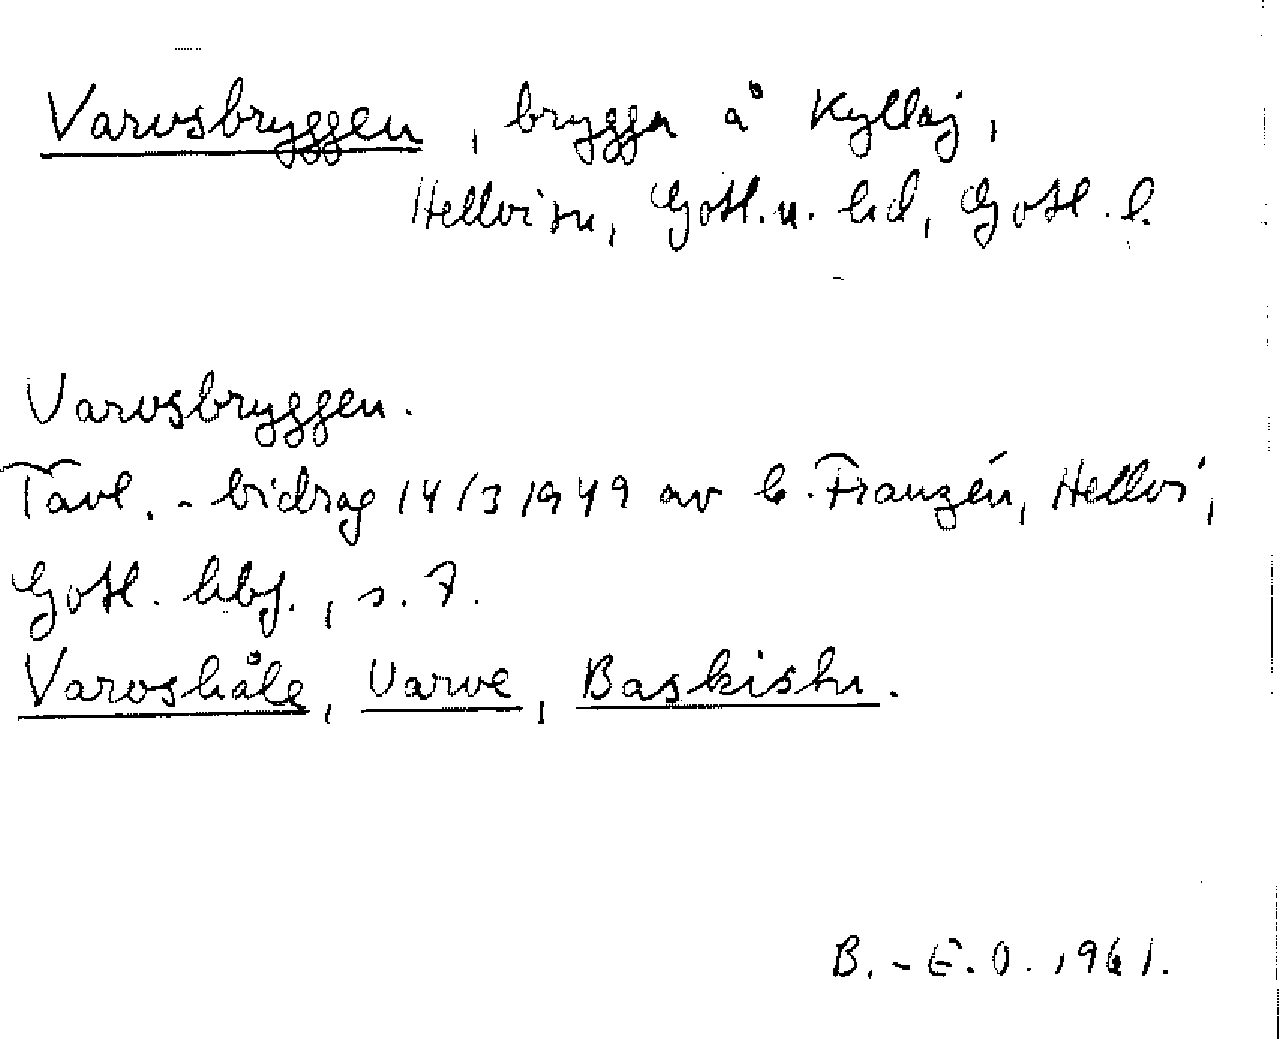 Varvsbryggen, brygga å Kyllaj,
Hellvi sn, Gotl. n. hd, Gotl. l.
Varvsbryggen.
Tävl.-bidrag 14/3 1949 av G. Franzén, Hellvi,
Gotl. hbf., s. 7.
Varvshåle, Varve,
B.-E.O. 1961.